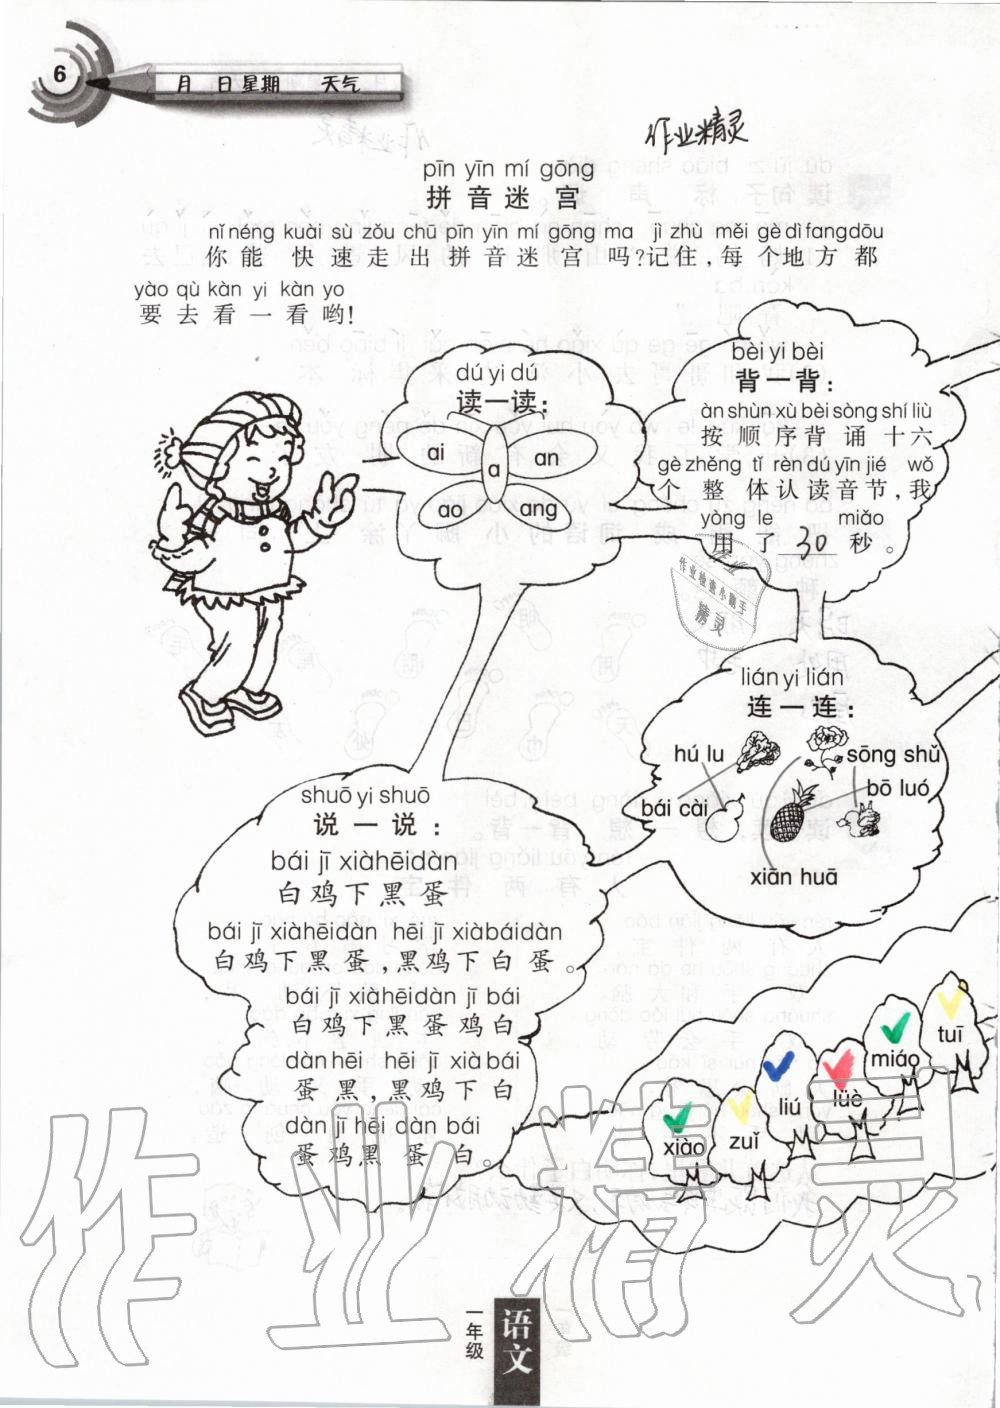 6
月 日 星期 天气
作业精灵
pīn yīn mí gōng
拼音迷宫
nǐ néng kuài sù zǒu chū pīn yīn mí gōng ma jì zhù měi gè dì fang dōu
你能快速走出拼音迷宫吗?记住,每个地方都
yào qù kàn yi kàn yo
要去看一看哟!
dú yi dú
读一读:
ai
a
an
ao
ang
bèi yi bèi
背一背:
àn shùn xù bèi sòng shí liù
按顺序背诵十六
gè zhěng tǐ rèn dú yīn jié wǒ
个整体认读音节,我
yòng le miǎo
用了30秒。
作业检查小助手
精灵
lián yi lián
连一连:
hú lu
sōng shǔ
bái cài
bō luó
xiān huā
shuō yi shuō
说一说:
bái jī xià hēi dàn
白鸡下黑蛋
bái jī xià hēi dàn hēi jī xià bái dàn
白鸡下黑蛋,黑鸡下白蛋。
bái jī xià hēi dàn jī bái
白鸡下黑蛋鸡白
dàn hēi hēi jī xià bái
蛋黑,黑鸡下白
dàn jī hēi dàn bái
蛋鸡黑蛋白。
xiào
zuǐ
liú
lüè
miáo
tuī
作业精灵
一年级
语文